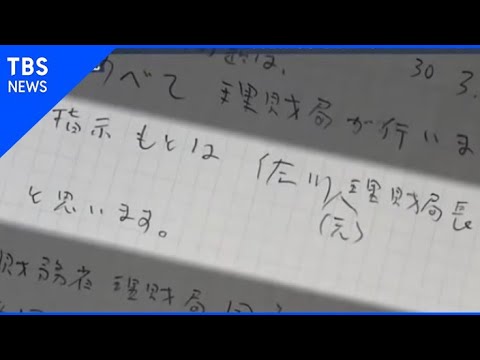 TBS
NEWS
は、
30 3.
すべて 理財局が行いま
指示もとは 佐川(元)理財局長
と思います。
財務省理財局